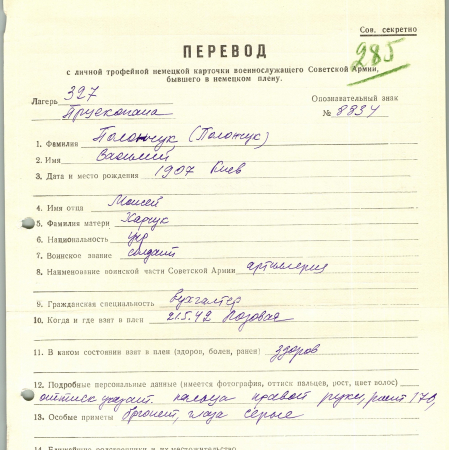 Сов. секретно
285
ПЕРЕВОД
с личной трофейной немецкой карточки военнослужащего Советской Армии,
бывшего в немецком плену.
Лагерь 327
Опознавательный знак
№ 8834
1. Фамилия Полончук (Положук)
2. Имя Василий
3. Дата и место рождения 1907 Киев
4. Имя отца Моисей
5. Фамилия матери Харчук
6. Национальность укр
7. Воинское звание солдат
8. Наименование воинской части Советской Армии артиллерия
9. Гражданская специальность бухгалтер
10. Когда и где взят в плен 21.5.42 Лозовая
11. В каком состоянии взят в плен (здоров, болен, ранен) здоров
12. Подробные персональные данные (имеется фотография, оттиск пальцев, рост, цвет волос)
оттиск указат. пальца правой руки, рост 170,
13. Особые приметы брюнет, глаза серые
14. Ближайшие родственники и их местожительство